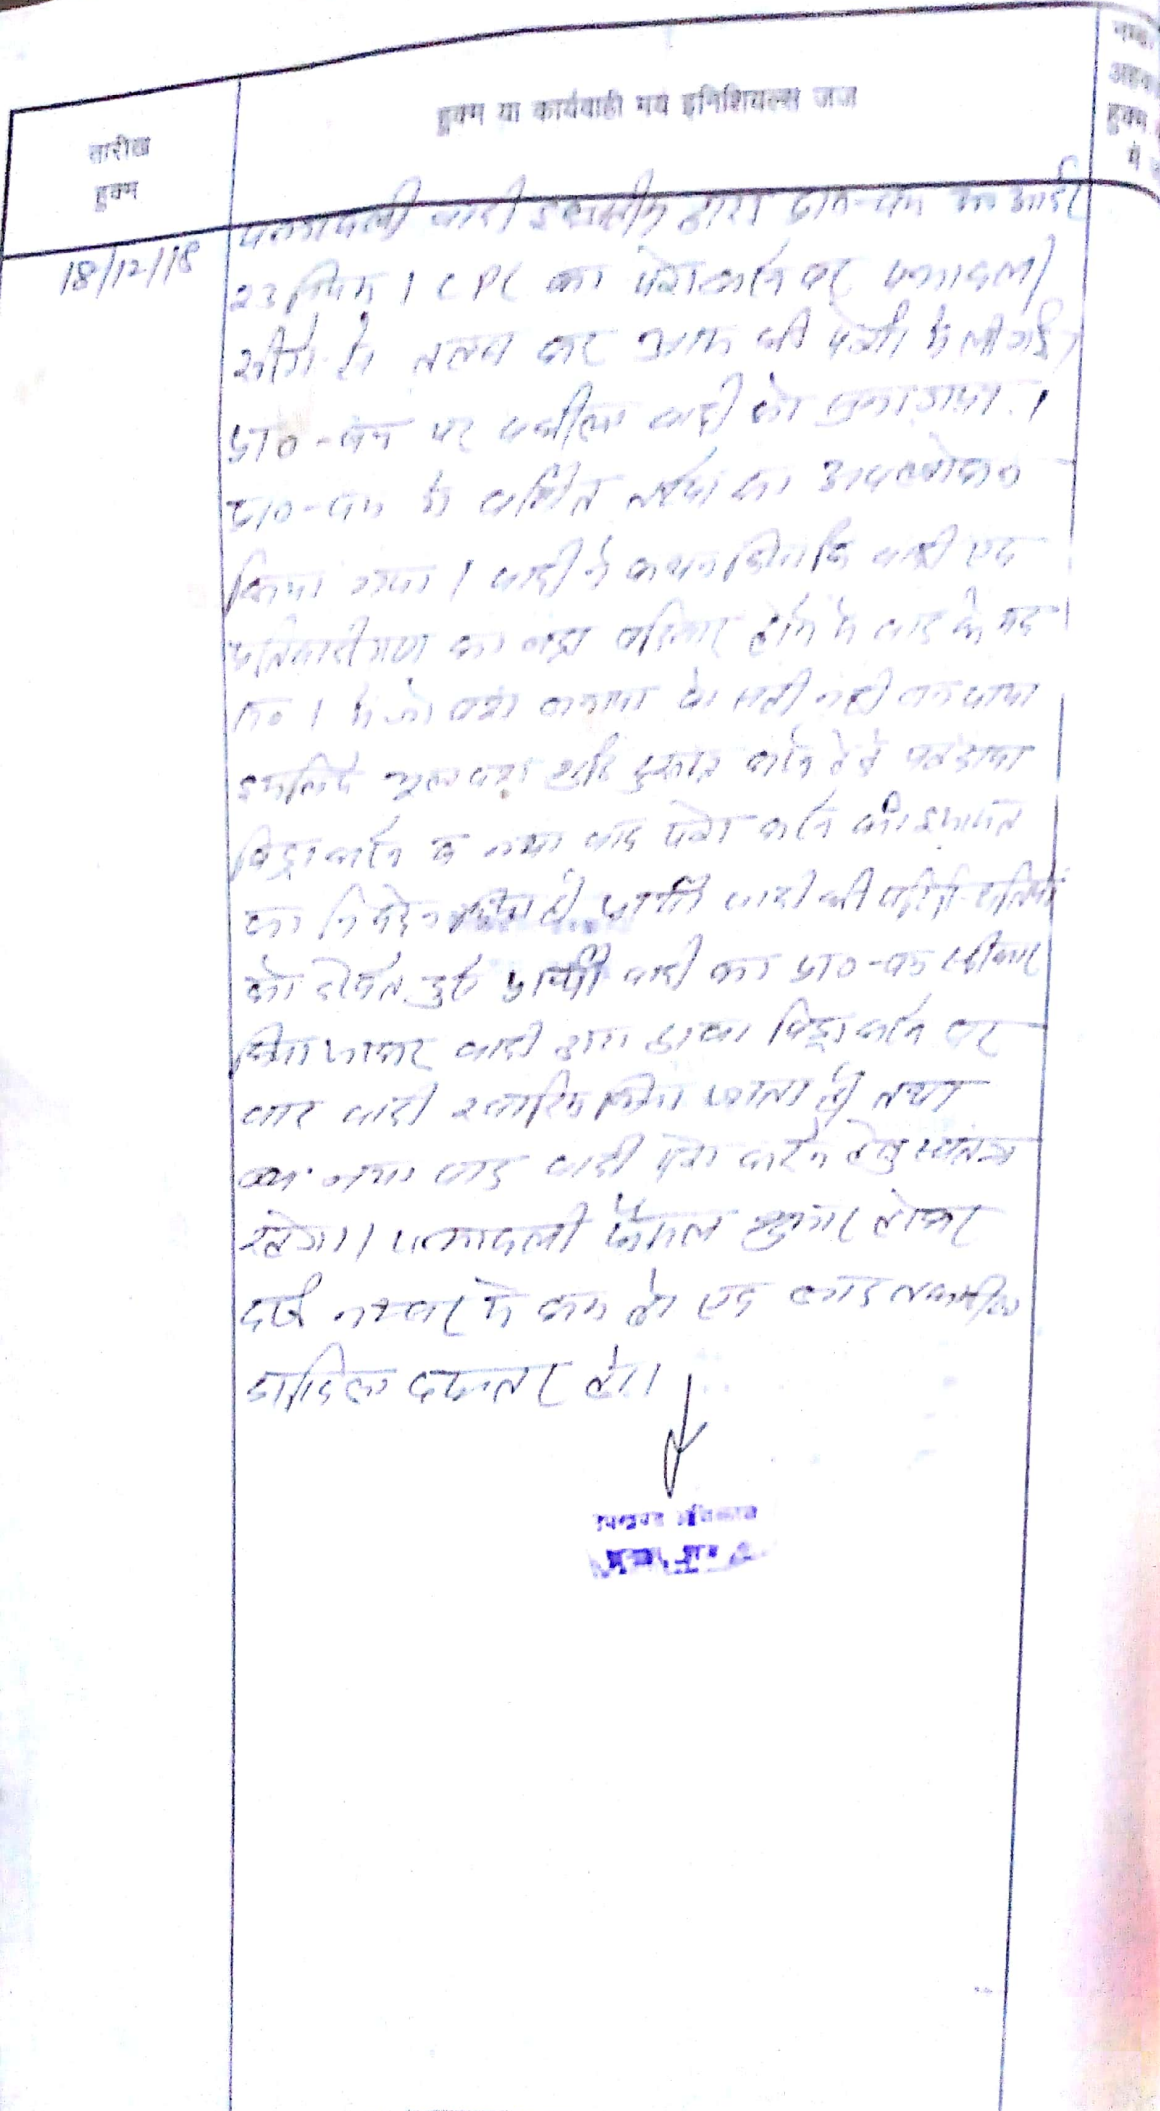 तारीख
हुक्म
हुक्म या कार्यवाही मय इनिशियल्स जज
हुक्म
में
18/12/18
पत्रावली वादी द्वारा प्रा०-पत्र आर्डर
23 नियम 1 CPC का पेश करने पर पत्रावली
से तलब कर आज की पेशी में ली गई।
प्रा०-पत्र पर वकील वादी को सुना गया।
प्रा०-पत्र में वर्णित तथ्यों का अवलोकन
किया गया। वादी ने कथन किया कि वादी एवं
प्रतिवादीगण का बड़ा परिवार होने से वाद के मद
नं० 1 में जो वंश वो सही नहीं बन पाया
इसलिये वंश करने हेतु
विड्रा करने व नया वाद पेश करने की इजाजत
का निवेदन किया है प्रार्थी वादी की परिस्थितियों
को देखते हुए प्रार्थी वादी का प्रा०-पत्र स्वीकार
किया जाकर वादी द्वारा दावा विड्रा करने पर
वाद वादी खारिज किया जाता है तथा
नया वाद वादी पेश करने हेतु स्वतंत्र
रहेगा। पत्रावली फैसल शुमार होकर
दर्ज नम्बर से कम हो एवं बाद तकमील
दाखिल दफ्तर हो।
उपखण्ड अधिकारी